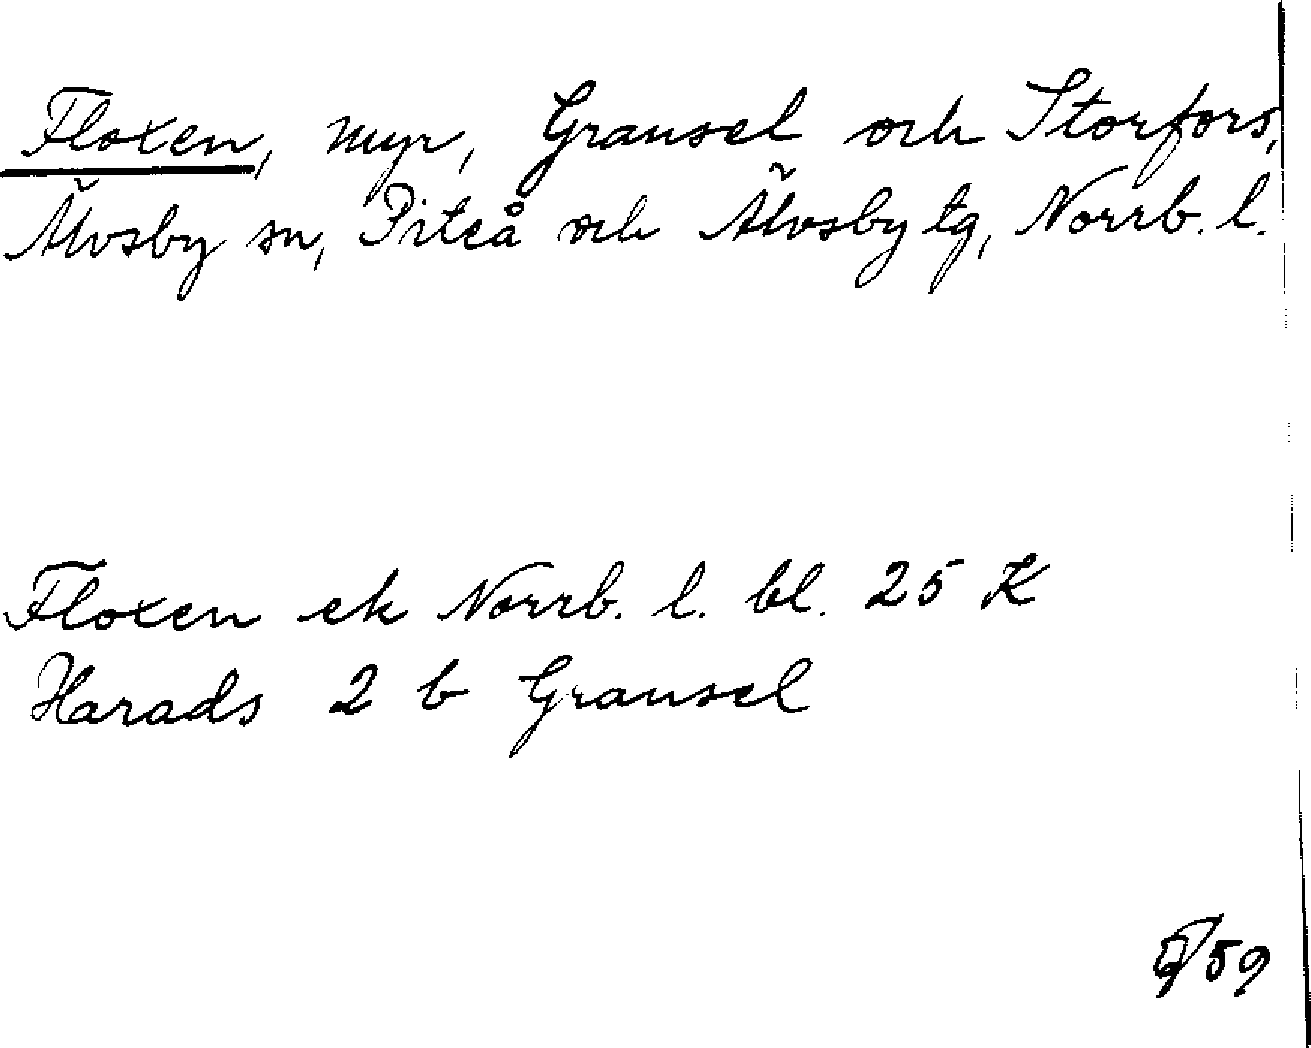 Floxen, myr, Gransel och Storfors,
Älvsby sn, Piteå och Älvsby tg, Norrb. l.
Floxen ek Norrb. l. bl. 25 K
Harads 2 b Gransel
59